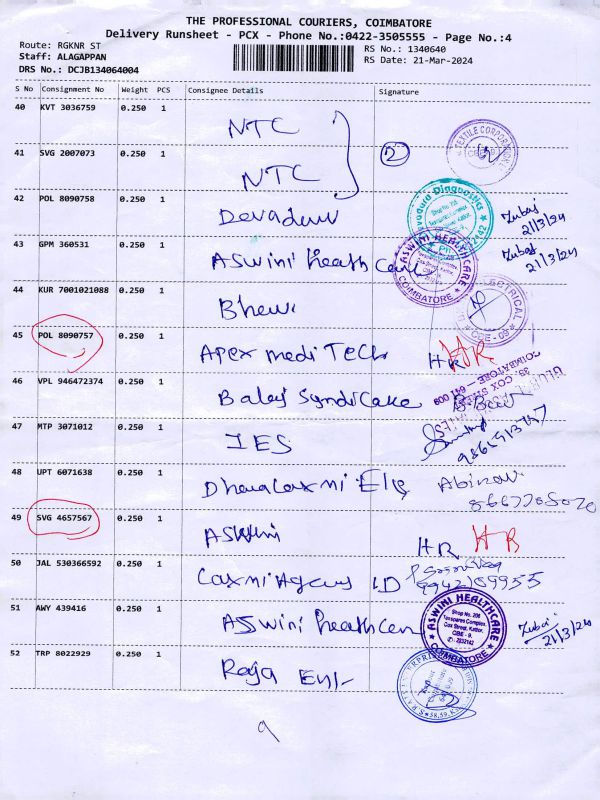 THE PROFESSIONAL COURIERS, COIMBATORE
Delivery Runsheet - PCX - Phone No.:0422-3505555 - Page No.:4
Route: RGKNR ST
RS No.: 1340640
Staff: ALAGAPPAN
RS Date: 21-Mar-2024
DRS No.: DCJB134064004
S No Consignment No Weight PCS Consignee Details Signature
40 KVT 3036759 0.250 1 NTC
41 SVG 2007073 0.250 1 NTC 2
42 POL 8090758 0.250 1 Devadurv
Devadura Diagnostics
21/3/24
43 GPM 360531 0.250 1 Aswini Heath Care
ASWINI HEALTHCARE COIMBATORE
21/3/24
44 KUR 7001021088 0.250 1
CBE - 09
45 POL 8090757 0.250 1 Apex medi Tech HR HR
46 VPL 946472374 0.250 1 Balaj Syndicate
COX STREET
COIMBATORE - 641 009
47 MTP 3071012 0.250 1 IES
48 UPT 6071638 0.250 1 Dhanalaxmi Ele
49 SVG 4657567 0.250 1 Aswini HR HR
50 JAL 530366592 0.250 1 Laxmi Agency LD
9942189955
51 AWY 439416 0.250 1 Asswini Heath Cen
ASWINI HEALTHCARE
Shop No. 208
Texspares Complex,
Cox Street, Kattor,
CBE - 9.
COIMBATORE
21/3/24
52 TRP 8022929 0.250 1 Raja Ent
9